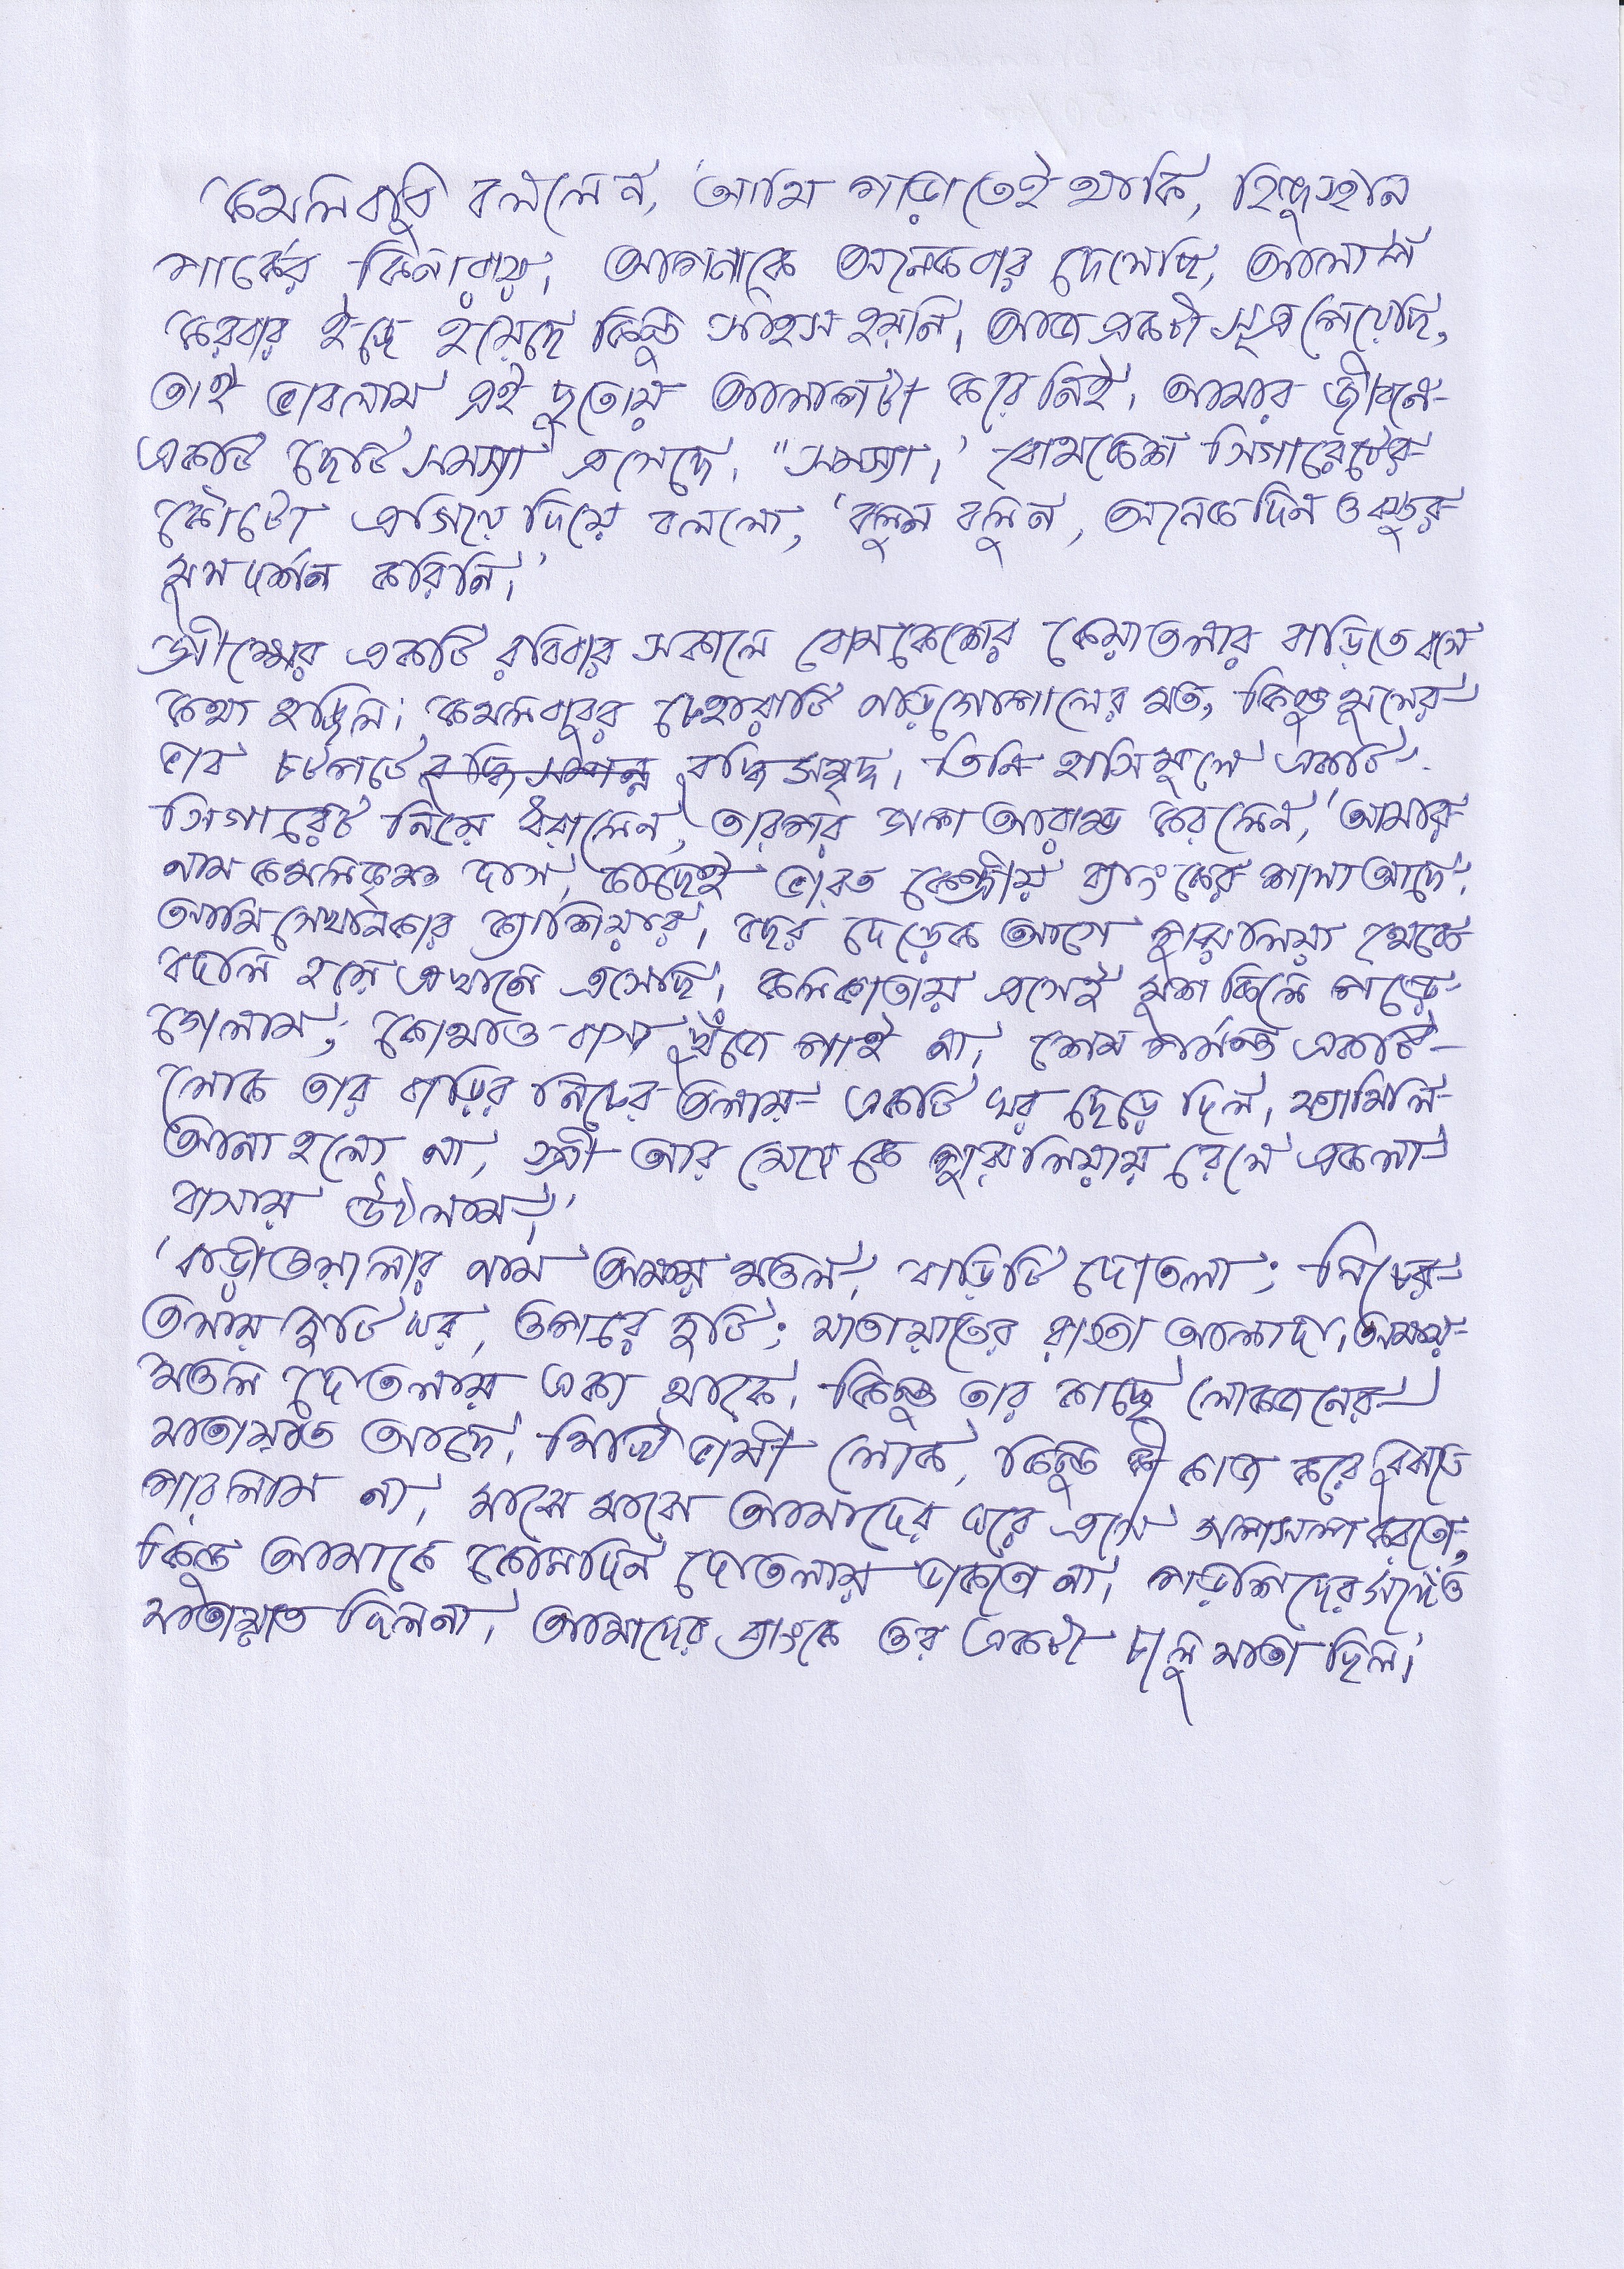 কমলবাবু বললেন, 'আমি পাড়াতেই থাকি, হিন্দুস্থান
পার্কের কিনারায়। আপনাকে অনেকবার দেখেছি, আলাপ
করবার ইচ্ছে হয়েছে কিন্তু সাহস হয়নি। আজ একটা সূত্র পেয়েছি,
তাই ভাবলাম এই ছুতোয় আলাপটা করে নিই। আমার জীবনে
একটি ছোট সমস্যা এসেছে। "সমস্যা।' ব্যোমকেশ সিগারেটের
কৌটো এগিয়ে দিয়ে বললো, 'বলুন বলুন, অনেকদিন ও বস্তুর
মুখ দর্শন করিনি।'
গ্রীষ্মের একটি রবিবার সকালে ব্যোমকেশের কেয়াতলার বাড়িতে বসে
কথা হচ্ছিল। কমলবাবুর চেহারাটি নাড়ুগোপালের মত, কিন্তু মুখের
ভাব চটপটে বুদ্ধি সম্পন্ন বুদ্ধি সমৃদ্ধ। তিনি হাসিমুখে একটি
সিগারেট নিয়ে ধরালেন, তারপর গল্প আরম্ভ করলেন, 'আমার
নাম কমলকৃষ্ণ দাস, কাছেই ভারত কেন্দ্রীয় ব্যাংকের শাখা আছে।
আমি সেখানকার ক্যাশিয়ার। বছর দেড়েক আগে পুরুলিয়া থেকে
বদলি হয়ে এখানে এসেছি। কলিকাতায় এসেই মুশকিলে পড়ে
গেলাম; কোথাও বাসা খুঁজে পাই না। শেষ পর্যন্ত একটি
লোক তার বাড়ির নিচের তলায় একটি ঘর ছেড়ে দিল। ফ্যামিলি
আনা হলো না, স্ত্রী আর মেয়েকে পুরুলিয়ায় রেখে একলা
বাসায় উঠলাম।'
'বাড়ীওয়ালার নাম অক্ষয় মণ্ডল। বাড়িটি দোতলা; নিচের
তলায় দুটি ঘর, ওপরে দুটি; যাতায়াতের রাস্তা আলাদা। অক্ষয়
মণ্ডল দোতলায় একা থাকে। কিন্তু তার কাছে লোকজনের
যাতায়াত আছে। মিষ্টিভাষী লোক, কিন্তু কী কাজ করে বুঝতে
পারলাম না। মাঝে মাঝে আমাদের ঘরে এসে গল্পসল্প করতো,
কিন্তু আমাকে কোনদিন দোতলায় ডাকতো না। পড়শিদের সঙ্গেও
যাতায়াত ছিলনা। আমাদের ব্যাংকে ওর একটা চালু খাতা ছিল।'